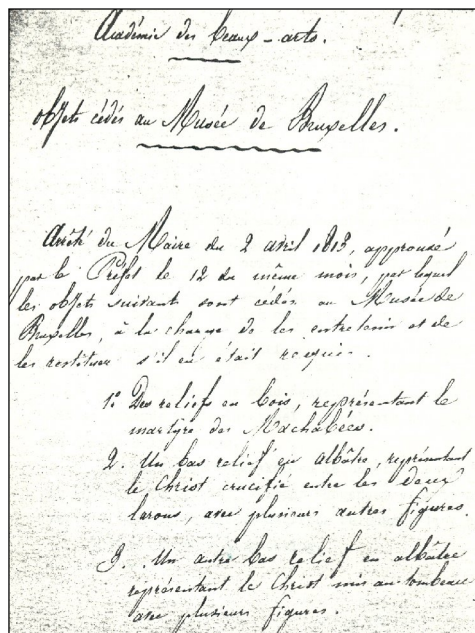 Académie des beaux-arts.
objets cédés au Musée de Bruxelles.
Arrêté du Maire du 2 avril 1813, approuvé
par le Préfet le 12 du même mois, par lequel
les objets suivants sont cédés au Musée de
Bruxelles, à la charge de les entretenir et de
les restituer s'il en était requis.
1° Des reliefs en bois, représentant le
martyre des Machabées.
2. Un bas relief en albâtre, représentant
le Christ crucifié entre les deux
larons, avec plusieurs autres figures.
3. Un autre bas relief en albâtre
représentant le Christ mis au tombeau
avec plusieurs figures.